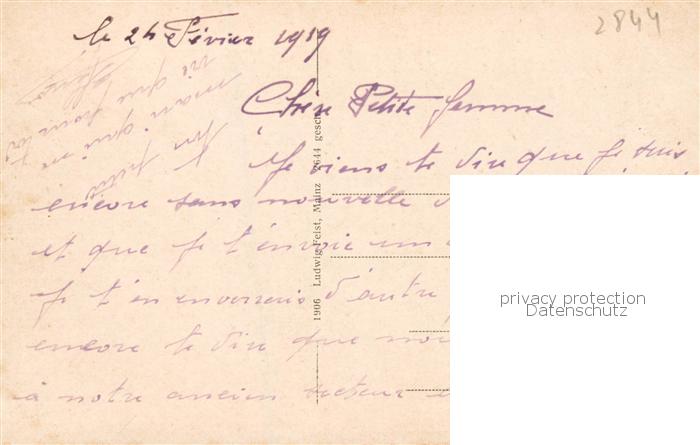 2844
le 24 Février 1919
Chère Petite femme
Je viens te dire que je suis
encore sans nouvelle d
et que je t'envoie un
je t'en enverrais d'autre
encore te dire que nou
à notre ancien secteur e
ton petit
mari qui ne
vie que pour toi
1906 Ludwig Feist, Mainz 2644 gesch.
privacy protection
Datenschutz